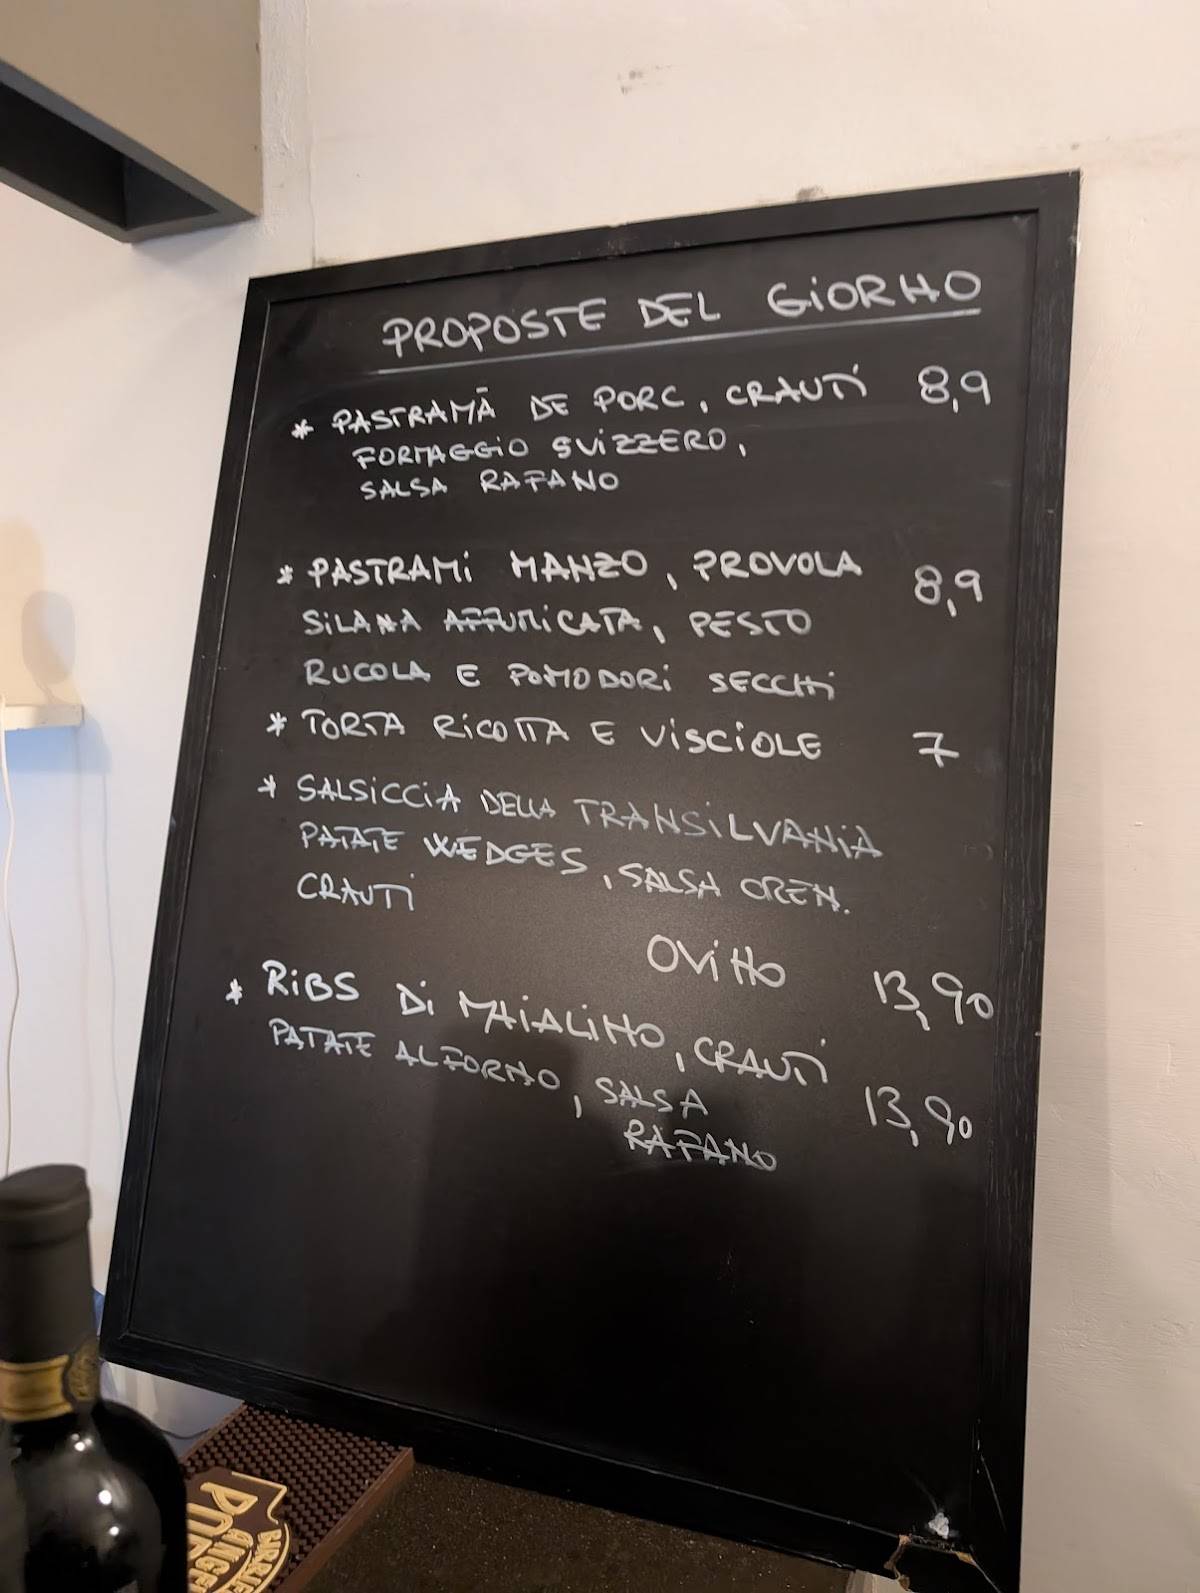 PROPOSTE DEL GIORNO
* PASTRAMĂ DE PORC, CRAUTI 8,9
FORMAGGIO SVIZZERO,
SALSA RAFANO
* PASTRAMI MANZO, PROVOLA 8,9
SILANA AFFUMICATA, PESTO
RUCOLA E POMODORI SECCHI
* TORTA RICOTTA E VISCIOLE 7
* SALSICCIA DELLA TRANSILVANIA
PATATE WEDGES, SALSA CREN.
CRAUTI
13,90
* RIBS DI MAIALINO, CRAUTI
PATATE AL FORNO, SALSA 13,90
RAFANO